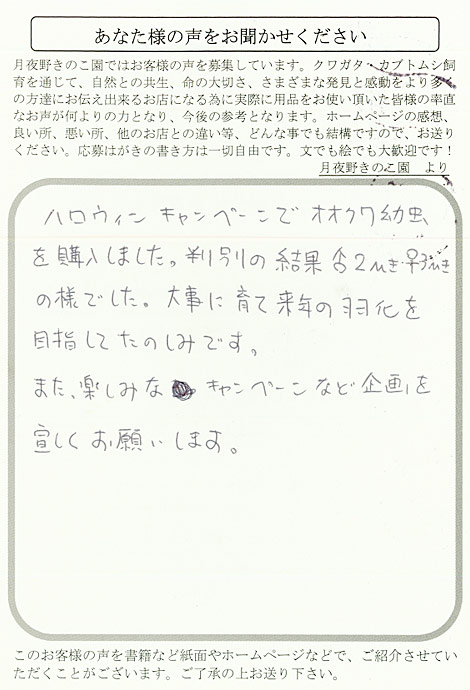 あなた様の声をお聞かせください
月夜野きのこ園ではお客様の声を募集しています。クワガタ・カブトムシ飼
育を通じて、自然との共生、命の大切さ、さまざまな発見と感動をより多く
の方達にお伝え出来るお店になる為に実際に用品をお使い頂いた皆様の率直
なお声が何よりの力となり、今後の参考となります。ホームページの感想、
良い所、悪い所、他のお店との違い等、どんな事でも結構ですので、お送り
ください。応募はがきの書き方は一切自由です。文でも絵でも大歓迎です！
月夜野きのこ園　より
ハロウィン キャンペーンで オオクワ幼虫
を購入しました。判別の結果 ♂2ひき・♀3ひき
の様でした。大事に育て来年の羽化を
目指してたのしみです。
また、楽しみな キャンペーンなど企画を
宜しくお願いします。
このお客様の声を書籍など紙面やホームページなどで、ご紹介させてい
ただくことがございます。ご了承の上お送り下さい。